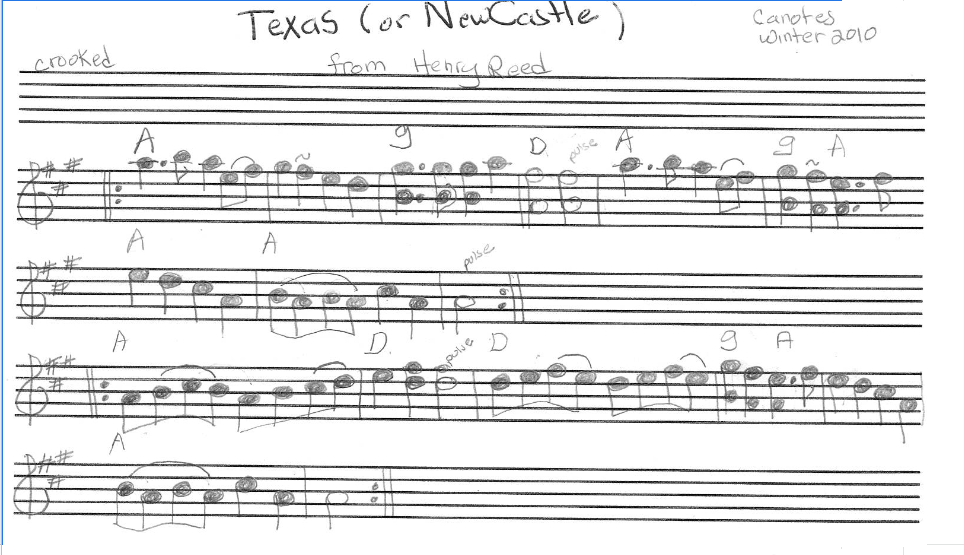 Texas (or NewCastle)
Canotes
Winter 2010
crooked
from Henry Reed
A g D pulse A g A
A A pulse
A D pulse D g A
A